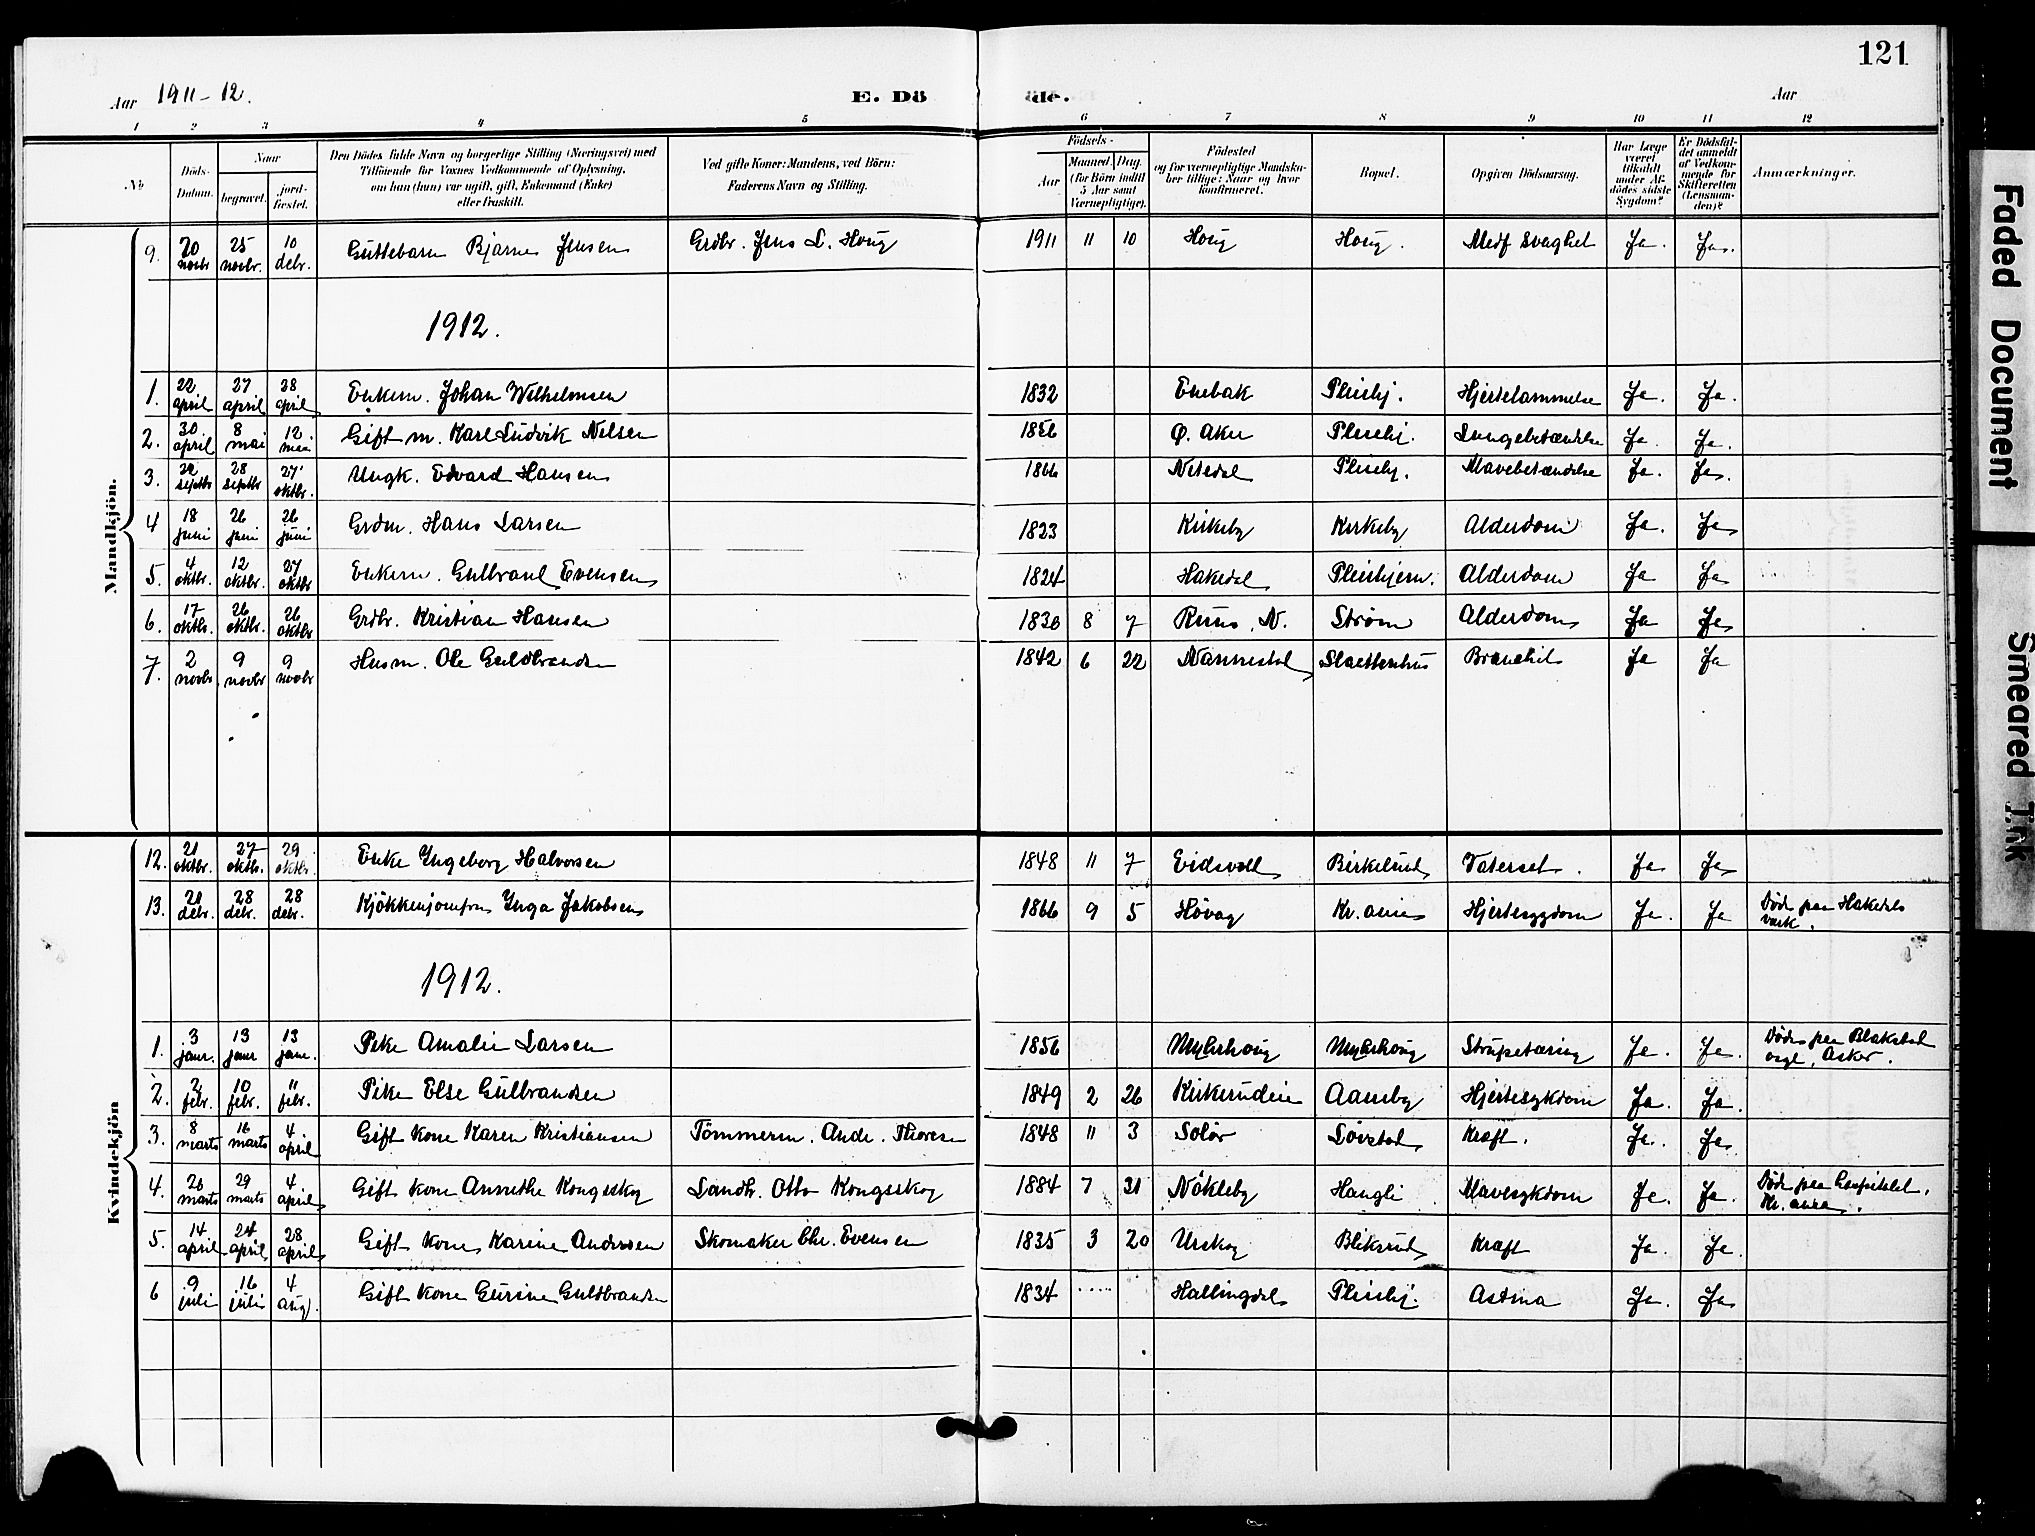 121
Aar 1911-12. E. Dö de. Aar
1 2 3 4 5 6 7 8 9 10 11 12
No
Döds-Datum.
Naar
begravet.
jord-fæstet.
Den Dödes fulde Navn og borgerlige Stilling (Næringsvei) med
Tilföiende for Voxnes Vedkommende af Oplysning,
om han (hun) var ugift, gift, Enkemand (Enke)
eller fraskilt.
Ved gifte Koner: Mandens, ved Börn:
Faderens Navn og Stilling.
Födsels-
Aar
Maaned. Dag.
(for Börn indtil
5 Aar samt
Værnepligtige).
Födested
og for værnepligtige Mandska-
ber tillige: Naar og hvor
konfirmeret.
Bopæl.
Opgiven Dödsaarsag.
Har Læge
været
tilkaldt
under Af-
dödes sidste
Sygdom?
Er Dödsfal-
det anmeldt
af Vedkom-
mende for
Skifteretten
(Lensman-
den)?
Anmærkninger.
Mandkjön.
9. 20 novbr 25 novbr. 10 debr. Guttebarn Bjarne Jensen Grdbr. Jens L. Houg 1911 11 10 Houg Houg. Medf Svaghet Ja. Ja.
1912.
1. 22 april 27 april 28 april Enkem. Johan Wilhelmsen 1832 Enebak Pleiehj. Hjertelammelse Ja. Ja.
2. 30 april 8 mai 12 mai Gift m. Karl Ludvik Nilsen 1856 Ø. Aker Pleiehj. Lungebetændelse Ja. Ja.
3. 22 septbr 28 septbr 27 oktbr. Ungk. Edvard Hansen 1866 Nitedal Pleiehj. Mavebetændelse Ja. Ja.
4 18 juni 26 juni 26 juni Grdm. Hans Larsen 1823 Kirkeby Kirkeby Alderdom Ja. Ja
5. 4 oktbr. 12 oktbr. 27 oktbr Enkem. Gulbrand Evensen 1824 Hakedal Pleiehjem. Alderdom Ja Ja
6. 17 oktbr. 26 oktbr. 26 oktbr Grdbr. Kristian Hansen 1830 8 7 Ruus, N. Strøm Alderdom Ja Ja
7. 2 novbr 9 novbr 9 novbr Husm. Ole Guldbrandsen 1842 6 22 Nannestad Slattenhus Bronchit Ja Ja
Kvindekjön
12. 21 oktbr. 27 oktbr. 29 oktbr. Enke Yngeborg Halvorsen 1848 11 7 Eidsvold Birkelund Vatersot. Ja Ja
13. 20 debr. 28 debr. 28 debr. Kjøkkenjomfru Ynga Jakobsen 1866 9 5 Høvag Kr.ania Hjertesygdom Ja. Ja Døde paa Hakedals
værk.
1912.
1. 3 janr. 13 janr 13 janr. Pike Amalie Larsen 1856 Myhrhoug Myhrhoug Strupetæring Ja. Ja. Døde paa Blakstad
asyl, Asker.
2. 2 febr. 10 febr. 11 febr. Pike Else Gulbrandsen 1849 2 26 Kirkerudeie Aamby Hjertesykdom Ja. Ja.
3. 8 marts 16 marts 4 april Gift Kone Karen Kristiansen Tømmerm. And. Thoresen 1848 11 3 Solør Løvstad Kræft. Ja. Ja
4. 20 marts 29 marts 4 april Gift Kone Annethe Kongsskog Landh. Otto Kongsskog 1884 7 31 Nökleby Haugli Mavesykdom Ja. Ja. Død paa hospitalet,
Kr.ania.
5. 14 april 24 april 28 april Gift Kone Karine Andersen Skomaker Chr. Evensen 1835 3 20 Urskog Bliksrud Kræft Ja. Ja.
6 9 juli 16 juli 4 aug. Gift Kone Gurine Guldbrandsen 1834 Hallingdal Pleiehj. Astma Ja. Ja
Faded Document
Smeared Ink